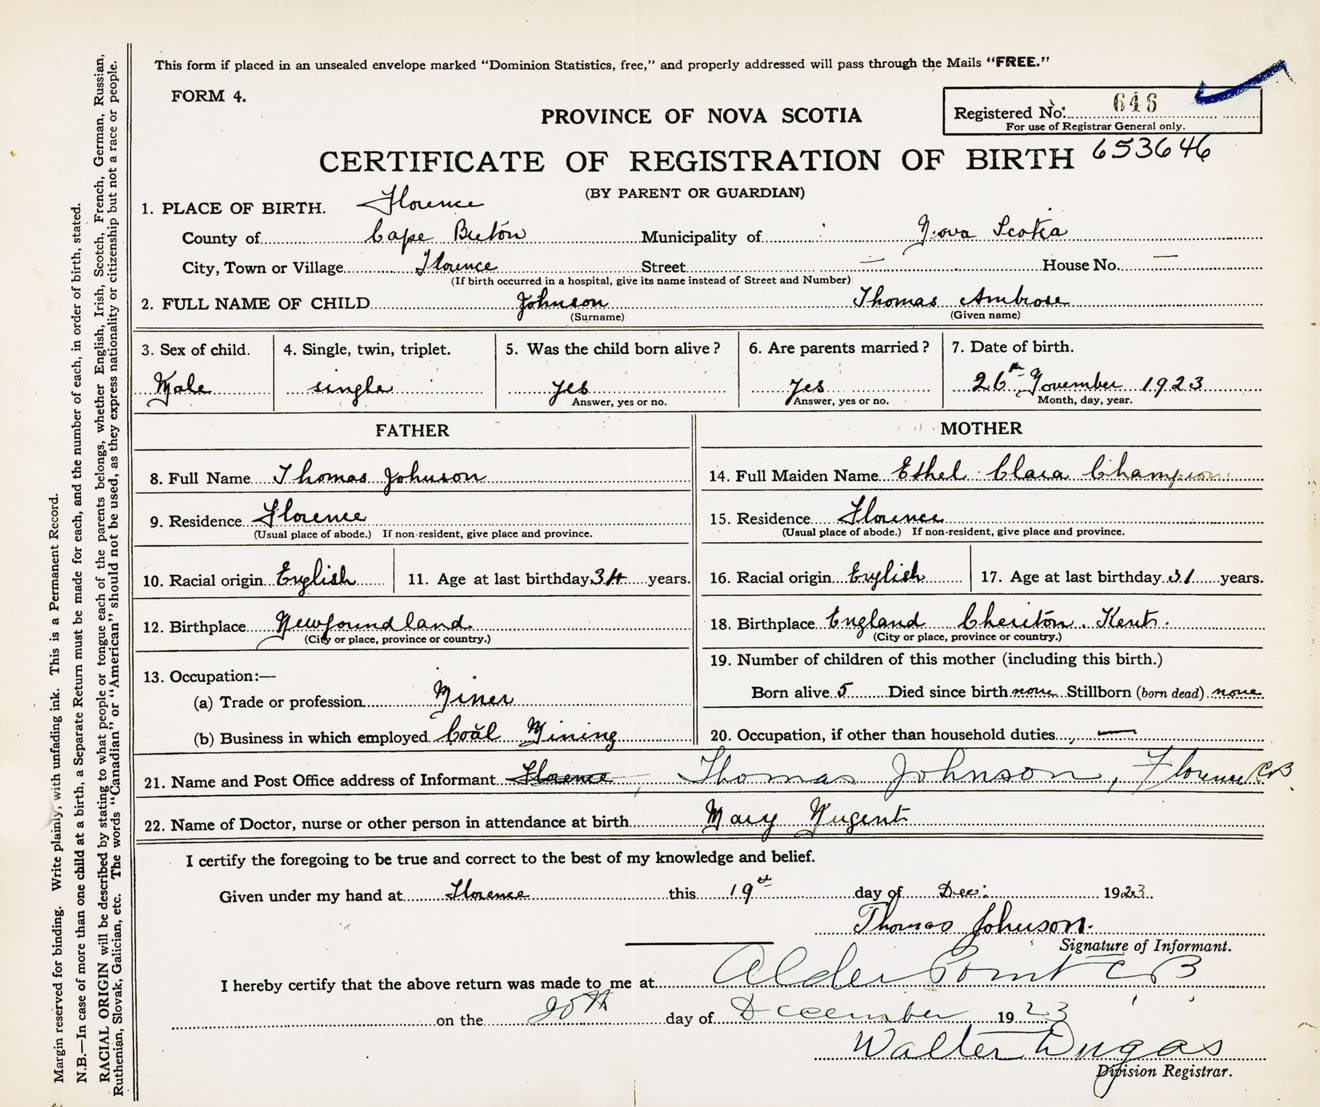 This form if placed in an unsealed envelope marked "Dominion Statistics, free," and properly addressed will pass through the Mails "FREE."
FORM 4.
PROVINCE OF NOVA SCOTIA
Registered No. 646
For use of Registrar General only.
CERTIFICATE OF REGISTRATION OF BIRTH 653646
(BY PARENT OR GUARDIAN)
1. PLACE OF BIRTH. Florence
County of Cape Breton Municipality of Nova Scotia
City, Town or Village Florence Street — House No. —
(If birth occurred in a hospital, give its name instead of Street and Number)
2. FULL NAME OF CHILD Johnson Thomas Ambrose
(Surname) (Given name)
3. Sex of child. 4. Single, twin, triplet. 5. Was the child born alive? 6. Are parents married? 7. Date of birth.
Male single yes Yes 26th November 1923
Answer, yes or no. Answer, yes or no. Month, day, year.
FATHER MOTHER
8. Full Name Thomas Johnson 14. Full Maiden Name Ethel Clara Champion
9. Residence Florence 15. Residence Florence
(Usual place of abode.) If non-resident, give place and province. (Usual place of abode.) If non-resident, give place and province.
10. Racial origin English 11. Age at last birthday 34 years. 16. Racial origin English 17. Age at last birthday 31 years.
12. Birthplace Newfoundland. 18. Birthplace England Cheriton. Kent.
(City or place, province or country.) (City or place, province or country.)
13. Occupation:— 19. Number of children of this mother (including this birth.)
(a) Trade or profession Miner Born alive 5 Died since birth none Stillborn (born dead) none
(b) Business in which employed Coal Mining 20. Occupation, if other than household duties. —
21. Name and Post Office address of Informant Florence Thomas Johnson, Florence C.B
22. Name of Doctor, nurse or other person in attendance at birth Mary Nugent
I certify the foregoing to be true and correct to the best of my knowledge and belief.
Given under my hand at Florence this 19th day of Dec: 1923.
Thomas Johnson.
Signature of Informant.
I hereby certify that the above return was made to me at Alder Point C B
on the 20th day of December 1923
Walter Dugas
Division Registrar.
Margin reserved for binding. Write plainly, with unfading ink. This is a Permanent Record.
N.B.—In case of more than one child at a birth, a Separate Return must be made for each, and the number of each, in order of birth, stated.
RACIAL ORIGIN will be described by stating to what people or tongue each of the parents belongs, whether English, Irish, Scotch, French, German, Russian,
Ruthenian, Slovak, Galician, etc. The words "Canadian" or "American" should not be used, as they express nationality or citizenship but not a race or people.